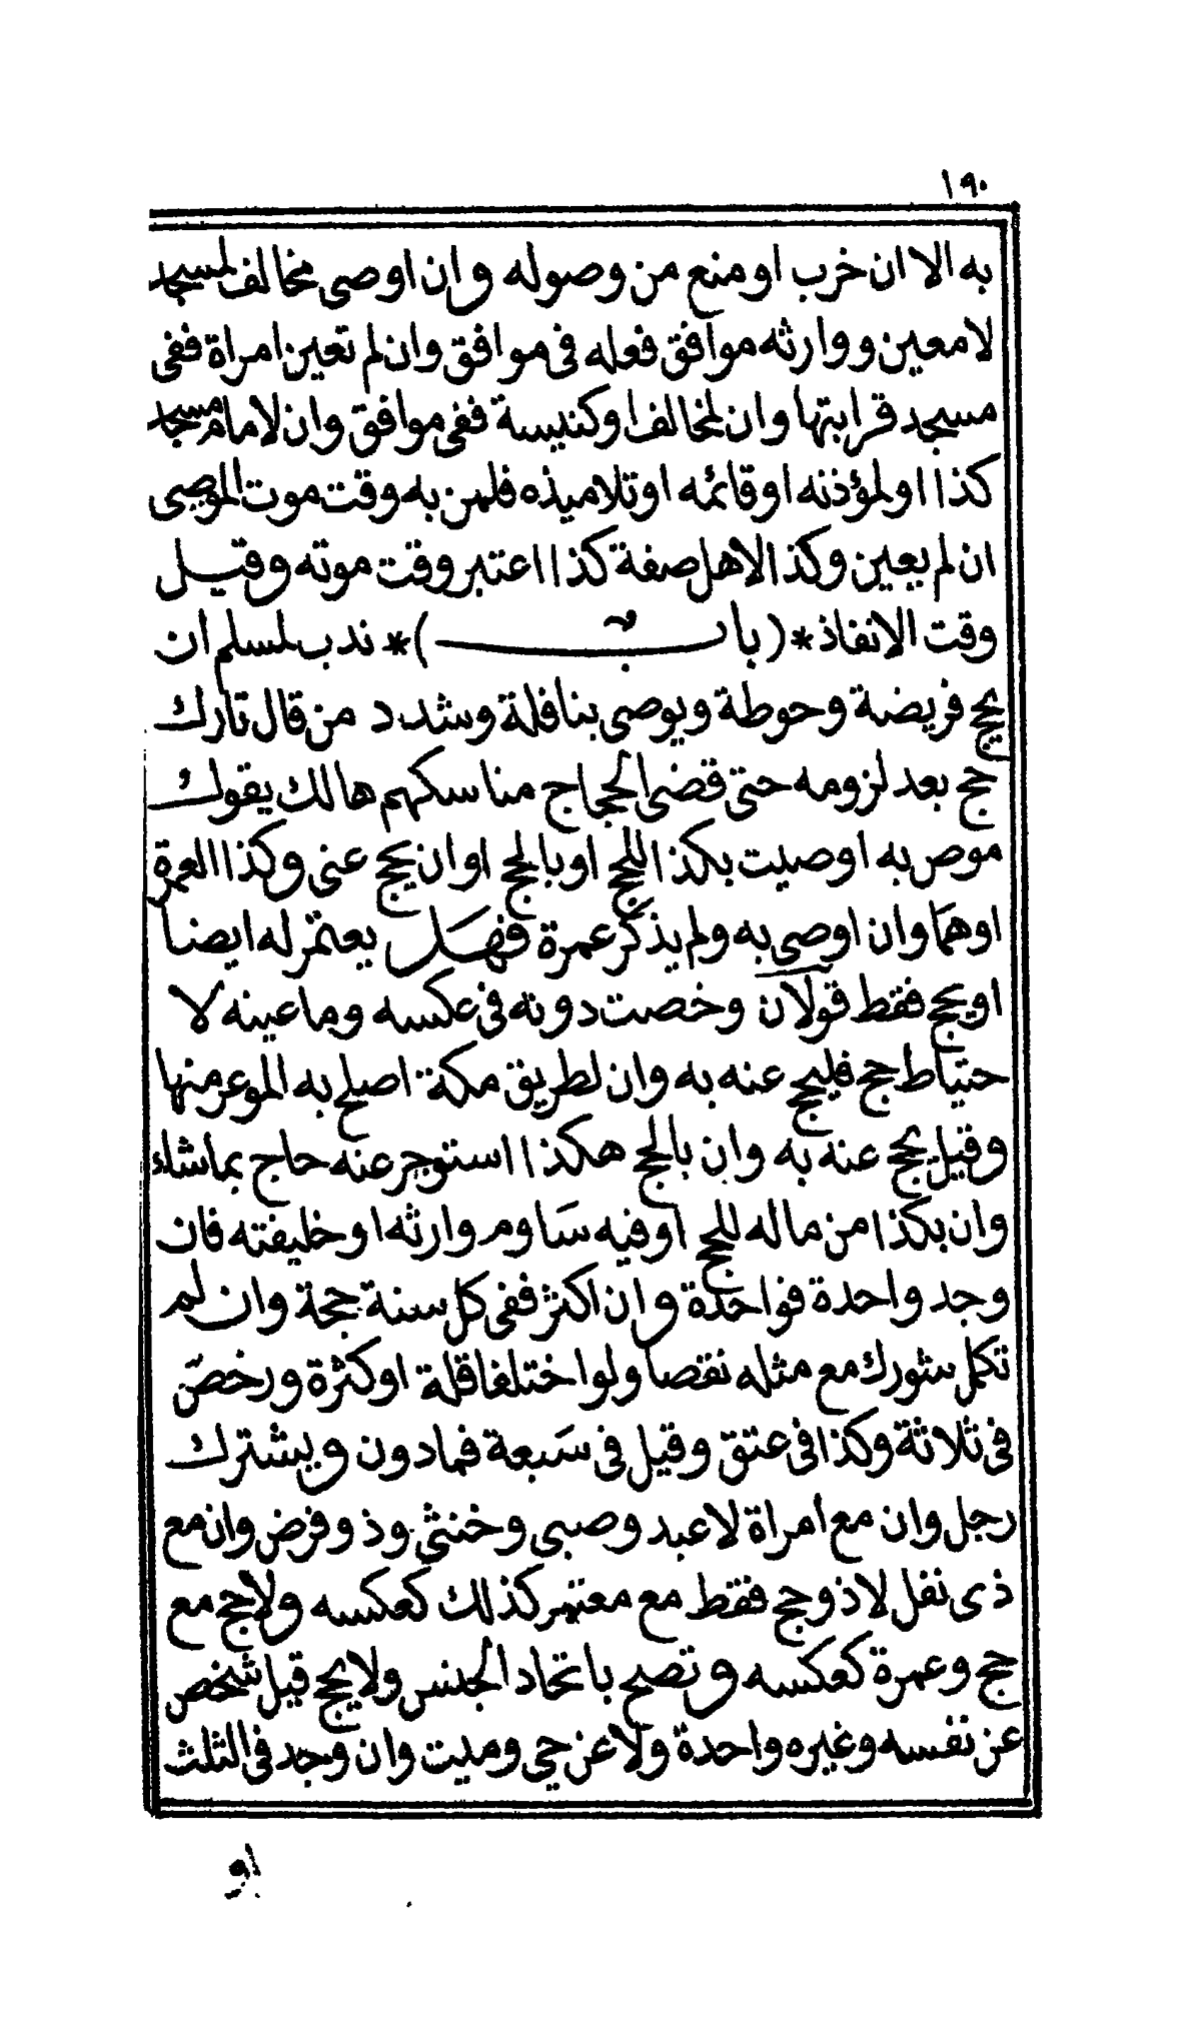 ١٩٠
به الا ان خرب او منع من وصوله وان اوصى مخالف لمسجد
لا معين ووارثه موافق فعله فى موافق وان لم تعين امراة ففى
مسجد قرابتها وان لمخالف او كنيسة ففى موافق وان لامام مسجد
كذا او لمؤذنه او قائمه او تلاميذه فلمن به وقت موت الموصى
ان لم يعين وكذا لاهل صفة كذا اعتبر وقت موته وقيل
وقت الانفاذ *( باب )* ندب لمسلم ان
يحج فريضة وحوطة ويوصى بنافلة وشدد من قال تارك
حج بعد لزومه حتى قضى الحجاج مناسكهم هالك يقول
موص به اوصيت بكذا للحج او بالحج او ان يحج عنى وكذا العمرة
او هما وان اوصى به ولم يذكر عمرة فهل يعتمر له ايضا
او يحج فقط قولان وخصت دونه فى عكسه وما عينه لا
حتياط حج فليحج عنه به وان لطريق مكة اصلح به الموعر منها
وقيل يحج عنه به وان بالحج هكذا استوجر عنه حاج بماشاء
وان بكذا من ماله للحج او فيه ساوم وارثه او خليفته فان
وجد واحدة فواحدة وان اكثر ففى كل سنة حجة وان لم
تكمل شورك مع مثله نقصا ولو اختلفا قلة او كثرة ورخص
فى ثلاثة وكذا فى عتق وقيل فى سبعة فمادون ويشترك
رجل وان مع امراة لا عبد وصبى وخنثى وذو فرض وان مع
ذى نفل لا ذو حج فقط مع معتمر كذلك كعكسه ولا حج مع
حج وعمرة كعكسه وتصح باتحاد الجنس ولا يحج قيل شخص
عن نفسه وغيره واحدة ولا عن حي وميت وان وجد فى الثلث
او